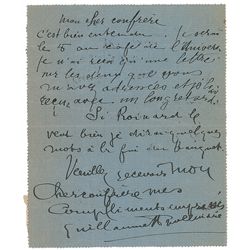 mon cher confrère
c'est bien entendu. Je serai
le 5 au café de l'Univers
je n'ai reçu qu'une lettre
sur les deux que vous
m'avez adressées et je l'ai
reçue avec un long retard.
Si Roinard le
veut bien je dirai quelques
mots à la fin du banquet
Veuillez recevoir mon
cher confrère mes
compliments empressés
Guillaume Apollinaire